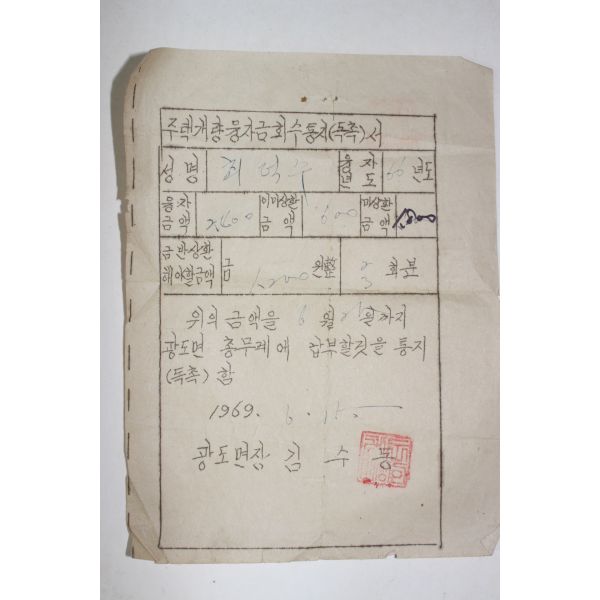 주택개량융자금회수통지(독촉)서
성명 최덕수 융자년도 66년도
융자금액 2,400 이미상환금액 600 미상환금액 1,800
금반상환해야할금액 금 1,200 원整 2 3 회분
위의 금액을 6 월 25 일까지
광도면 총무계에 납부할것을 통지
(독촉) 함
1969. 6. 15.
광도면장 김 수 동